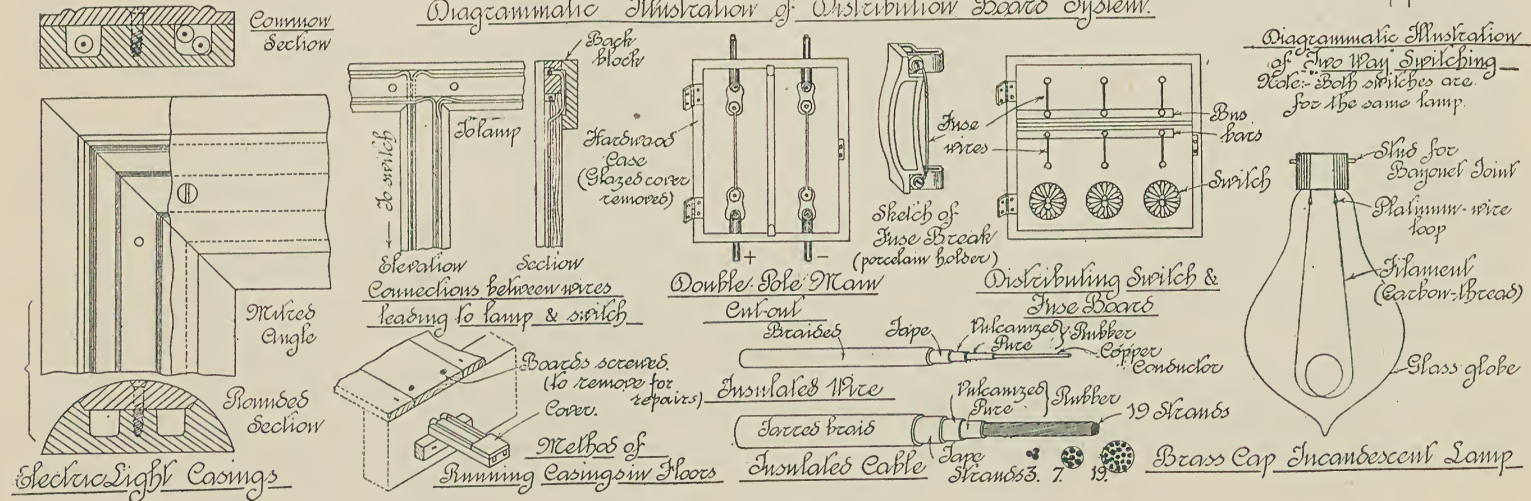 Diagrammatic Illustration of Distribution Board System.
Common
Section
Mitred
Angle
Rounded
Section
Electric Light Casings
Back
block
To lamp
To switch
Elevation
Section
Connections between wires
leading to lamp & switch
Boards screwed.
(to remove for
repairs)
Cover.
Method of
Running Casings in Floors
Hardwood
Case
(Glazed cover
removed)
+
-
Double-Pole Main
Cut-out
Fuse
wires
Sketch of
Fuse Break
(porcelain holder)
Bus
bars
Switch
Distributing Switch &
Fuse Board
Braided
Tape
Vulcanized
Pure
Rubber
Copper
Conductor
Insulated Wire
Tarred braid
Tape
Vulcanized
Pure
Rubber
19 Strands
Insulated Cable
Strands 3. 7. 19.
Diagrammatic Illustration
of Two Way Switching
Note:- Both switches are
for the same lamp.
Stud for
Bayonet Joint
Platinum-wire
loop
Filament
(Carbon-thread)
Glass globe
Brass Cap Incandescent Lamp